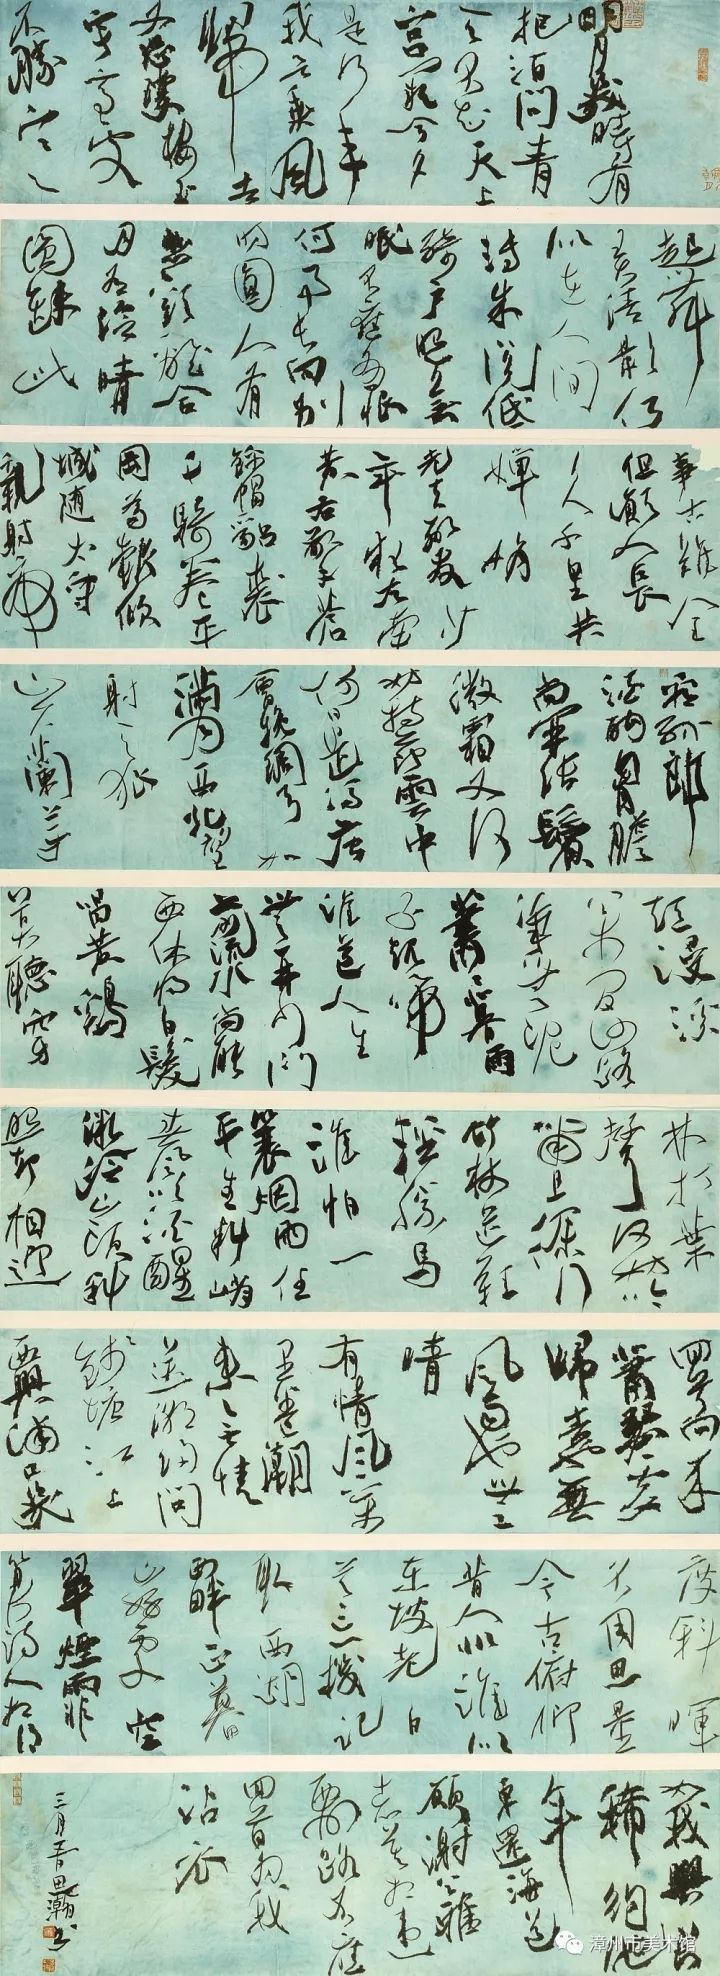 明月幾時有
把酒問青
天不知天上
宮闕今夕
是何年
我欲乘風
歸去
又恐瓊樓玉
宇高處
不勝寒
起舞
弄清影何
似在人間
轉朱閣低
綺戶照無
眠不應有恨
何事長向別
時圓人有
悲歡離合
月有陰晴
圓缺此
事古難全
但願人長
久千里共
嬋娟
老夫聊發少
年狂左牽
黃右擎蒼
錦帽貂裘
千騎卷平
岡爲報傾
城隨太守
親射虎
看孫郎
酒酣胸膽
尚開張鬢
微霜又何
妨持節雲中
何日遣馮唐
會挽雕弓如
滿月西北望
射天狼
山下蘭芽
短浸溪
松間沙路
淨無泥
蕭蕭暮雨
子規啼
誰道人生
無再少門
前流水尚能
西休將白髮
唱黃雞
莫聽穿
林打葉
聲何妨吟
嘯且徐行
竹杖芒鞋
輕勝馬
誰怕一
蓑烟雨任
平生料峭
春風吹酒醒
微冷山頭斜
照却相迎
回首向來
蕭瑟處
歸去也無
風雨也無
晴
有情風萬
里卷潮
來無情
送潮歸問
錢塘江上
西興浦口幾
度斜暉
不用思量
今古俯仰
昔人非誰似
東坡老白
首忘機記
取西湖
西畔正暮
山好處空
翠煙霏
算詩人相得
如我與君
稀約他
年
東還海道
願謝公雅
志莫相違
西州路不應
回首爲我
沾衣
三月 思瀚書
漳州市美术馆